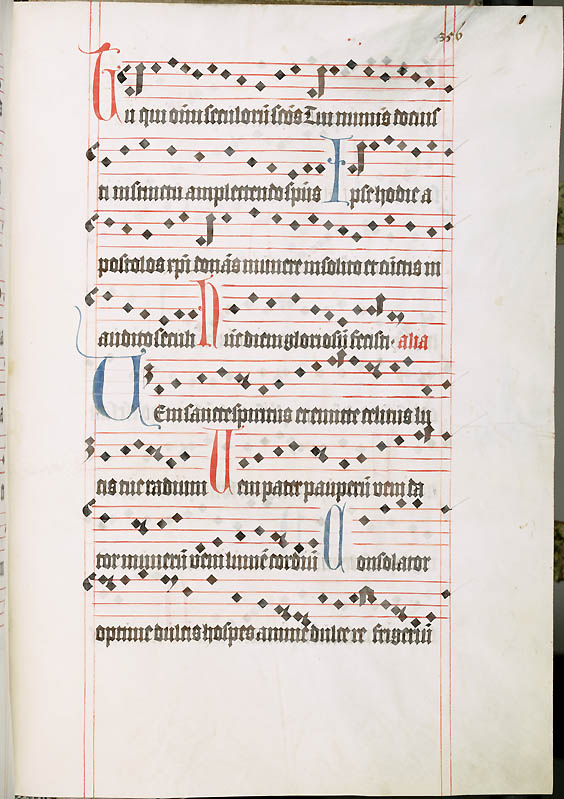 356
Tu qui oīm seculorū scōs Tui numīs docuis
ti instinctu amplectendo spūs Ipse hodie a
postolos xp̄i donās munere insolito et cūctis in
audito seculi Nūc diem gloriosū fecisti alia
Veni sancte spiritus et emitte celitus lu
cis tue radium Veni pater pauperū veni da
tor munerū veni lumē cordiū Consolator
optime dulcis hospes anime dulce re frigeriū